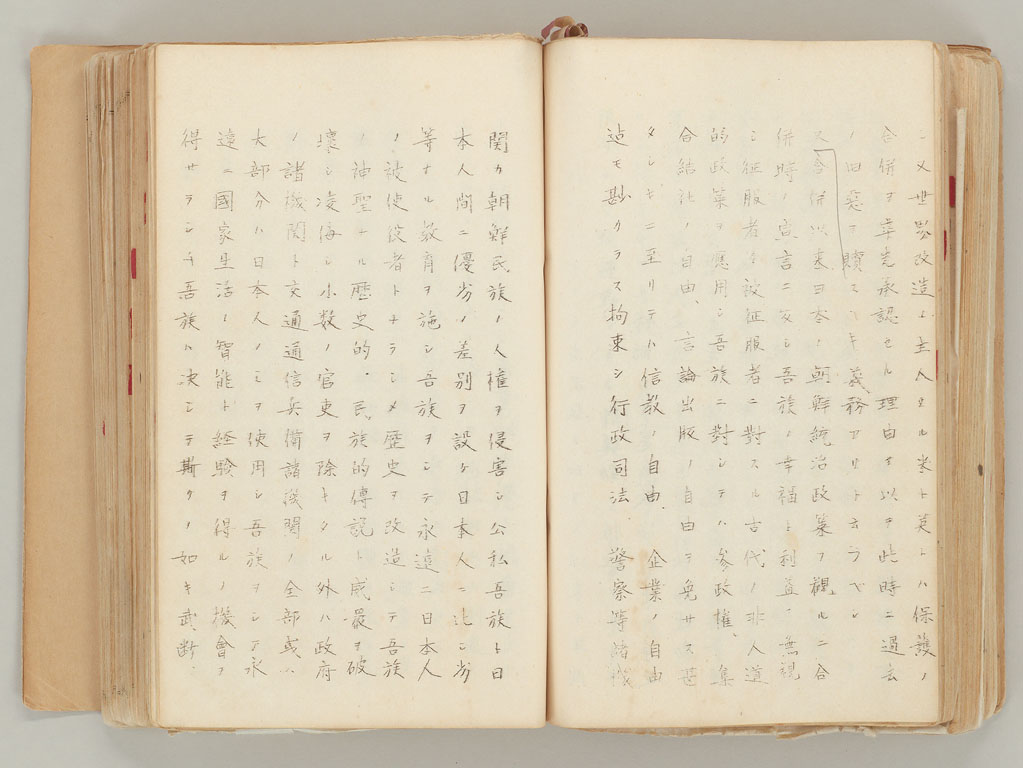 シ又世界改造ノ主人タル米ト英トハ保護ノ
合併ヲ率先承認セル理由ヲ以テ此時ニ過去
ノ旧悪ヲ贖フヘキ義務アリト云フベシ
又合併以来日本ノ朝鮮統治政策ヲ觀ルニ合
併時ノ宣言ニ反シ吾族ノ幸福ト利益ヲ無視
シ征服者カ被征服者ニ對スル古代ノ非人道
的政策ヲ應用シ吾族ニ對シテハ参政權、集
合結社ノ自由、言論出版ノ自由ヲ免サス甚
タシキニ至リテハ信教ノ自由、企業ノ自由
迠モ尠クラス拘束シ行政司法 警察等諸機
関カ朝鮮民族ノ人權ヲ侵害シ公私吾族ト日
本人間ニ優劣ノ差別ヲ設ケ日本人ニ比シ劣
等ナル敎育ヲ施シ吾族ヲシテ永遠ニ日本人
ノ被使役者トナラシメ歴史ヲ改造シテ吾族
ノ神聖ナル歴史的、民族的傳説ト威嚴ヲ破
壊シ凌侮シ小数ノ官吏ヲ除キタル外ハ政府
ノ諸機関ト交通通信兵備諸機関ノ全部或ハ
大部分ハ日本人ノミヲ使用シ吾族ヲシテ永
遠ニ國家生活ノ智能ト経験ヲ得ルノ機會ヲ
得サラシム吾族ハ决シテ斯クノ如キ武断、